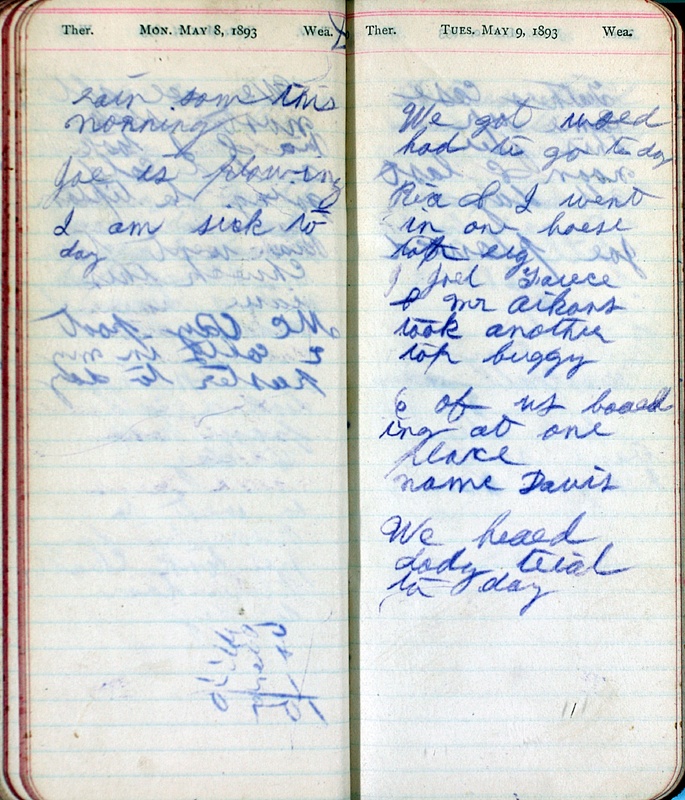 Ther. MON. MAY 8, 1893 Wea.
rain some this
morning
Joe is plowing
I am sick to
day
We Cay put
2 colts in my
paster to day
Ther. TUES. MAY 9, 1893 Wea.
We got word
had to go to day
& I went
in one horse
top rig
Joel
& Mr Aikons
took another
top buggy
6 of us board
ing at one
place
name Davis
We heard
dody trial
to day